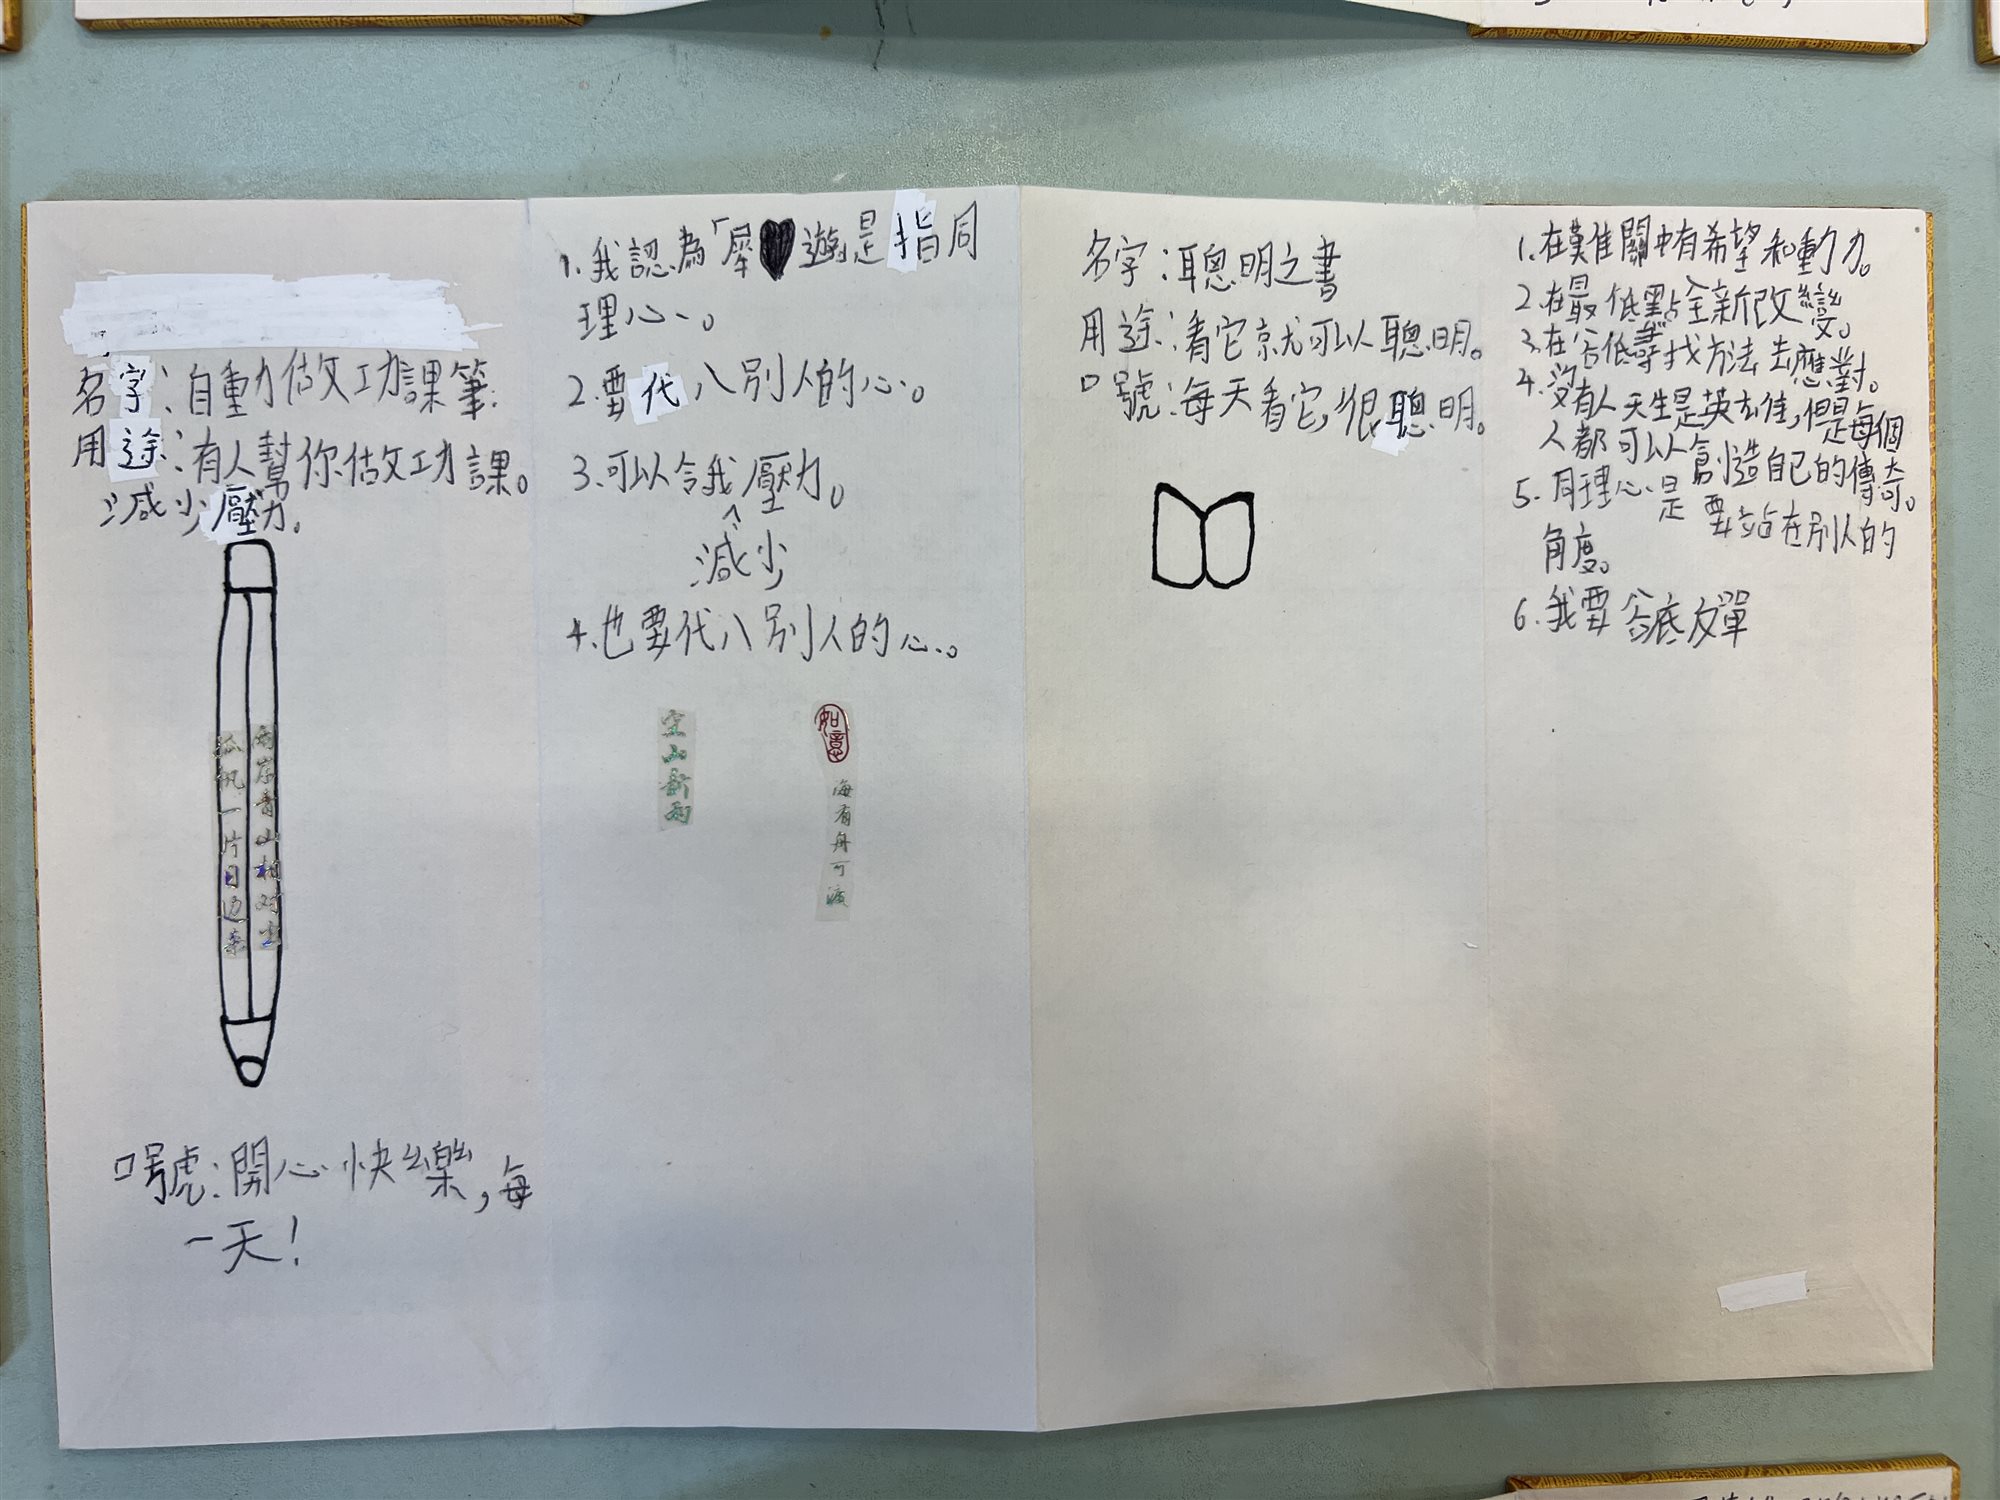 名字：自動做功課筆
用途：有人幫你做功課。
減少壓力。
兩岸青山相对出
孤帆一片日边来
口號：開心快樂，每
一天！
1.我認為「犀♥遊是指同
理心。
2.要代入別人的心。
3.可以令我壓力。
^
減少
4.也要代入別人的心。
空山新雨
如意
海有舟可渡
名字：聰明之書
用途：看它就可以聰明。
口號：每天看它，很聰明。
1.在難關中有希望和動力。
2.在最低點全新改變。
3.在谷低尋找方法去應對。
4.沒有人天生是英雄，但是每個
人都可以創造自己的傳奇。
5.同理心是要站在別人的
角度。
6.我要谷底反單